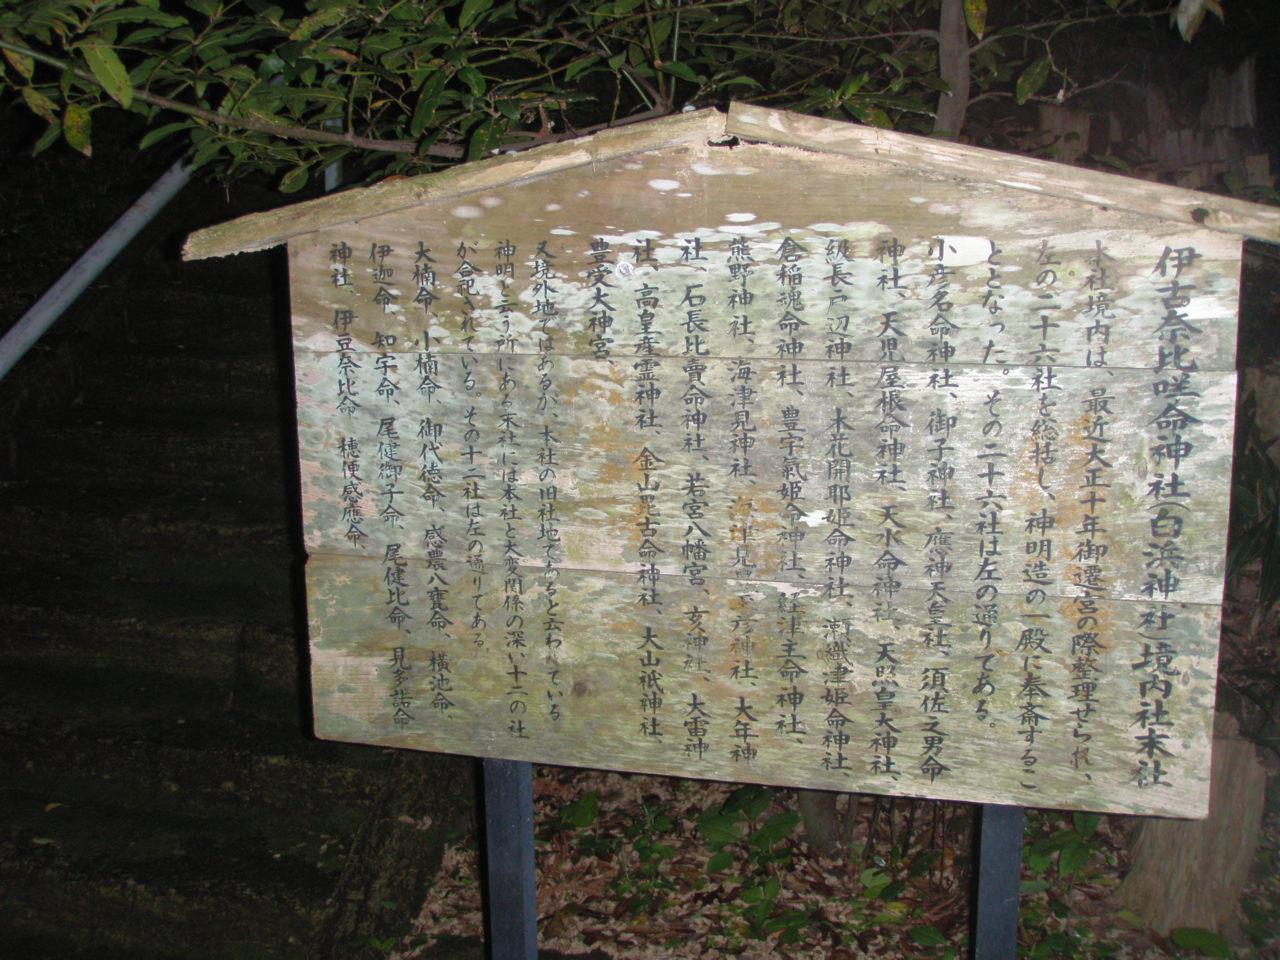 伊古奈比咩命神社(白浜神社)境内社末社
本社境内は、最近大正十年御遷宮の際整理せられ、
左の二十六社を総括し、神明造の一殿に奉斎するこ
ととなった。その二十六社は左の通りである。
小彦名命神社、御子神社、應神天皇社、須佐之男命
神社、天児屋根命神社、天水命神社、天照皇大神社、
級長戸辺神社、木花開耶姫命神社、瀬織津姫命神社、
倉稲魂命神社、豊宇氣姫命神社、経津主命神社、
熊野神社、海津見神社、彦神社、大年神
社、石長比賣命神社、若宮八幡宮、玄神社、大雷神
社、高皇産霊神社、金山毘古命神社、大山祇神社、
豊受大神宮、
又境外地ではあるが、本社の旧社地であると云われている
神明と云う所にある末社には本社と大変関係の深い十二の社
が合祀されている。その十二社は左の通りである
大楠命、小楠命、御代徳命、感農八甕命、横池命、
伊迦命、知宇命、尾健御子命、尾健比命、見多諾命
神社、伊豆奈比命、穂便感應命